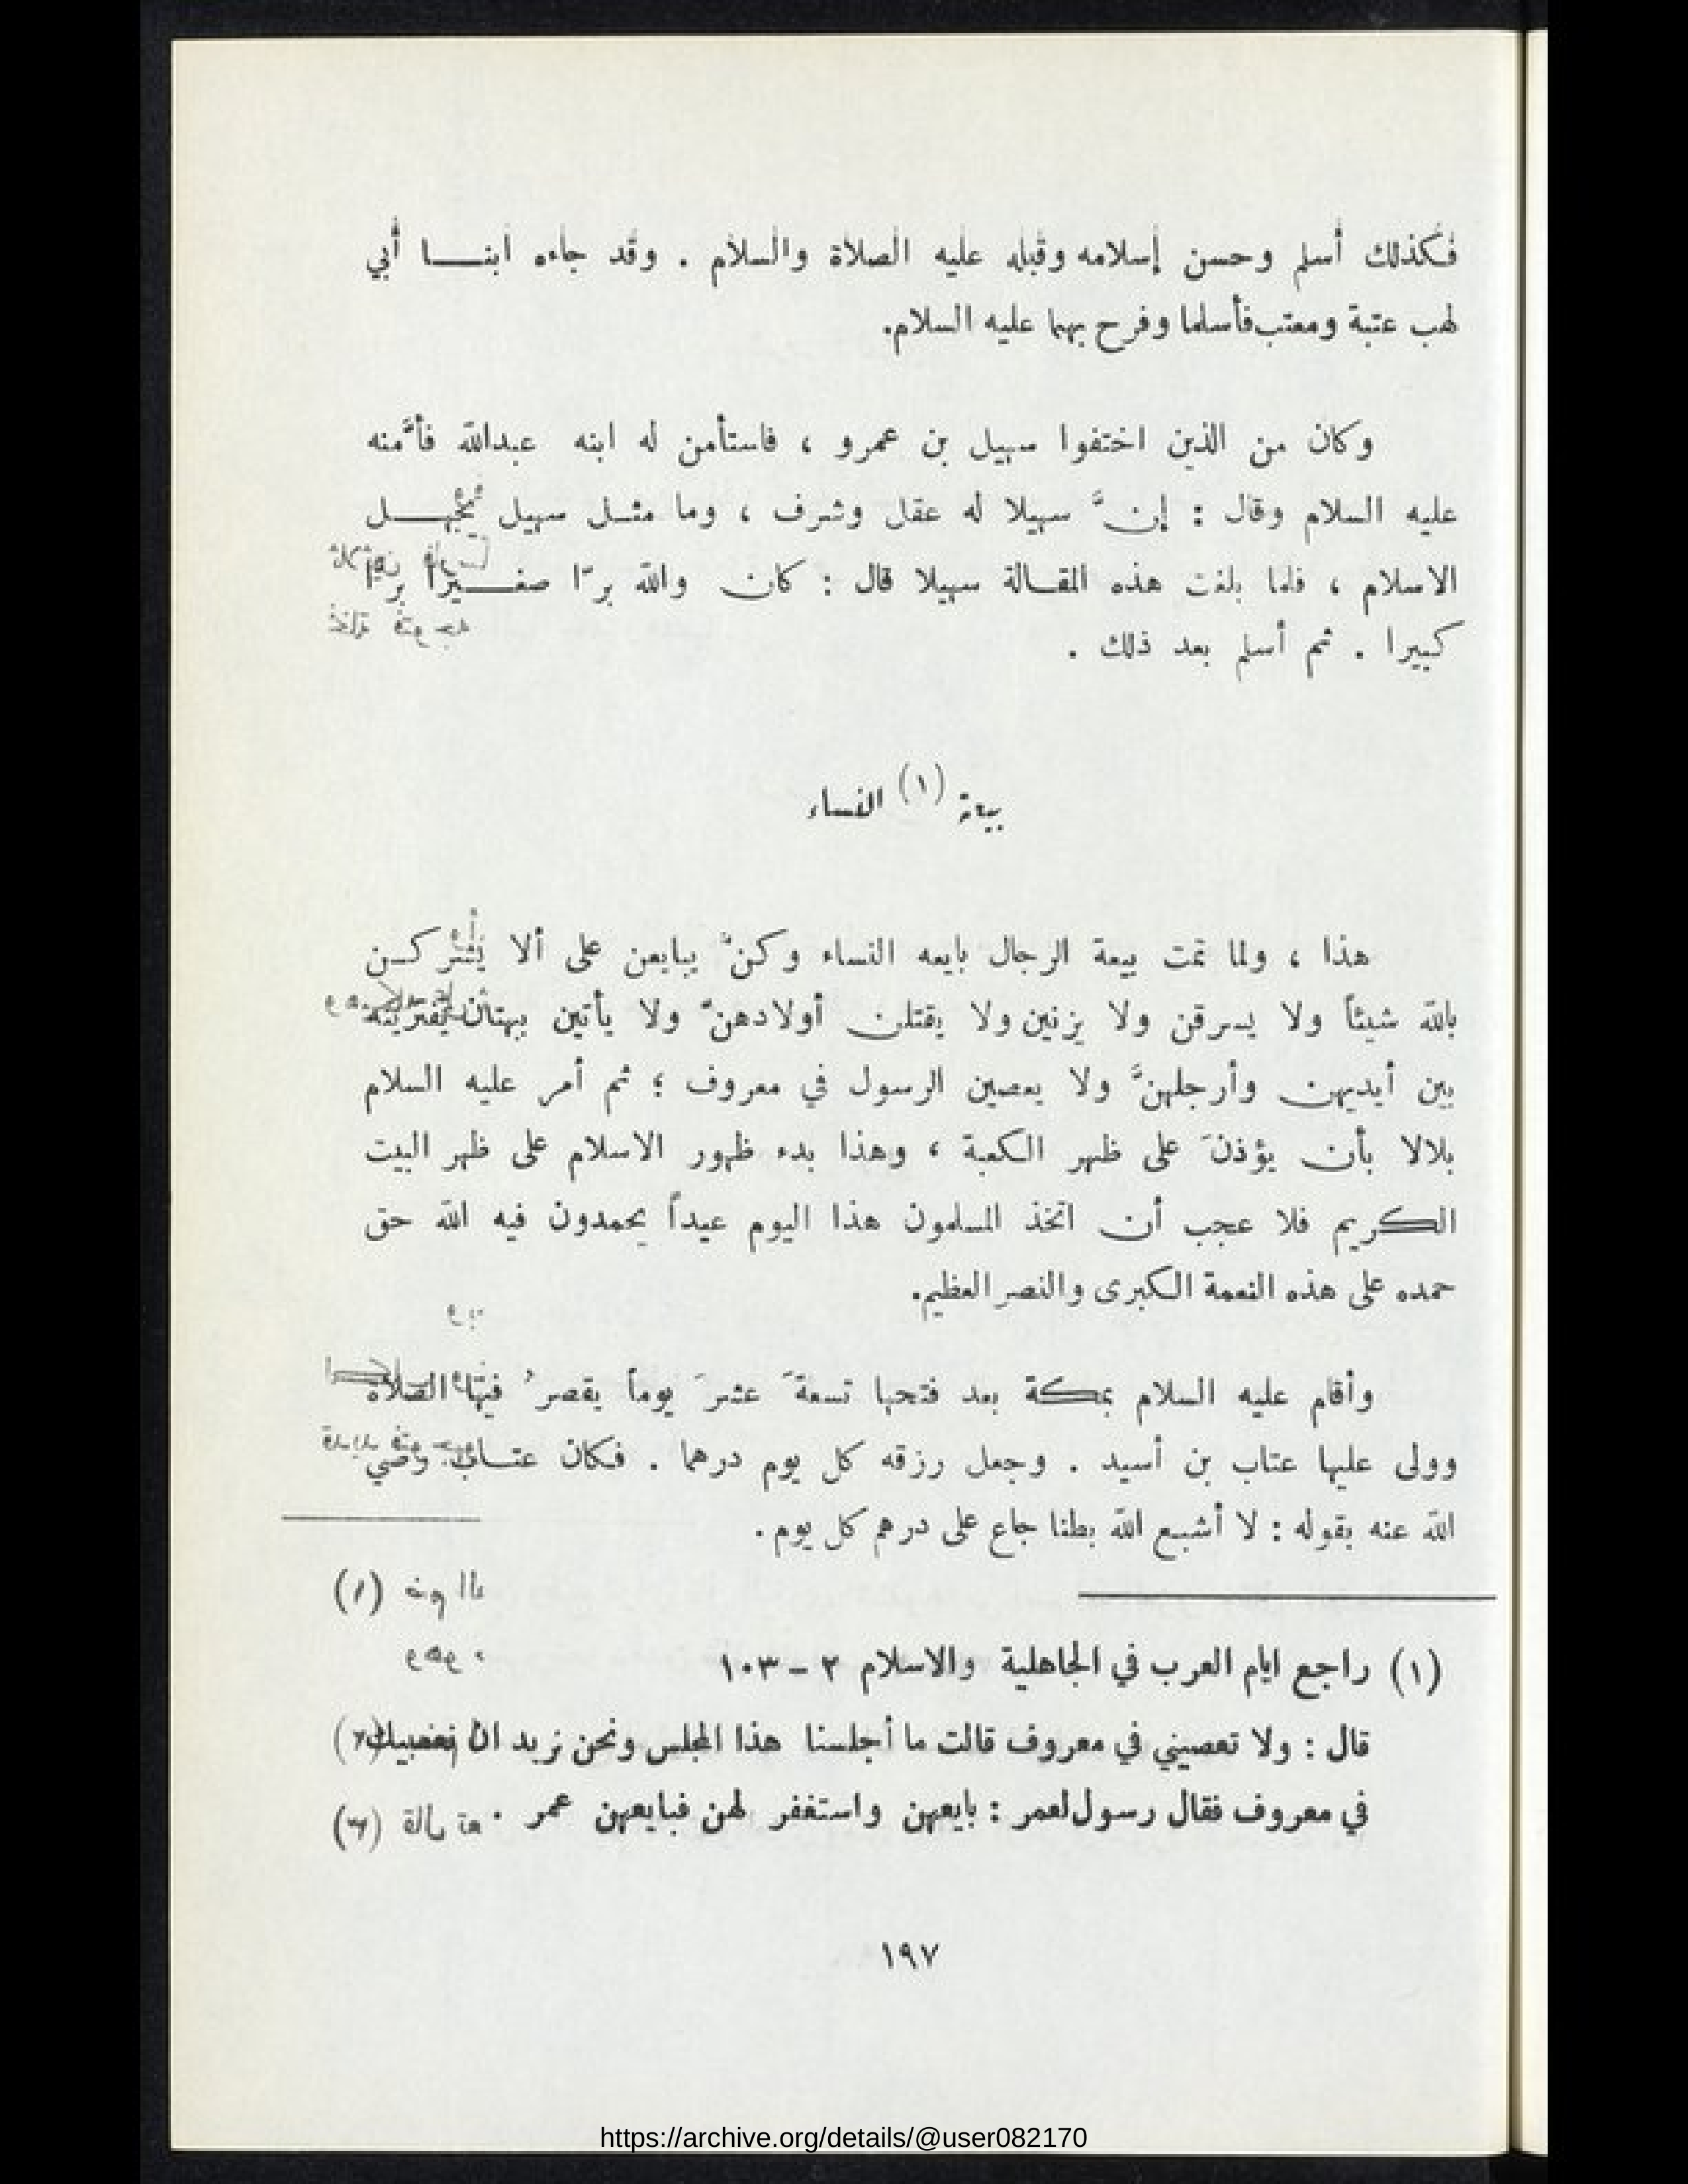 فكذلك أسلم وحسن إسلامه وقبله عليه الصلاة والسلام . وقد جاءه ابنـــا أبي
لهب عتبة ومعتب فأسلما وفرح بهما عليه السلام.
وكان من الذين اختفوا سهيل بن عمرو ، فاستأمن له ابنه عبدالله فأمَّنه
عليه السلام وقال : إنَّ سهيلا له عقل وشرف ، وما مثـل سهيل يجهـــل
الاسلام ، فلما بلغت هذه المقـالة سهيلا قال : كان والله برّا صغـــيراً برّاً
كبيرا . ثم أسلم بعد ذلك .
بيعة (١) النساء
هذا ، ولما تمت بيعة الرجال بايعه النساء وكنّ يبايعن على ألا يشركـن
بالله شيئاً ولا يسرقن ولا يزنين ولا يقتلن أولادهنّ ولا يأتين ببهتان يفترينه
بين أيديهن وأرجلهنَّ ولا يعصين الرسول في معروف ؛ ثم أمر عليه السلام
بلالا بأن يؤذنَ على ظهر الكعبة ، وهذا بدء ظهور الاسلام على ظهر البيت
الكريم فلا عجب أن اتخذ المسلمون هذا اليوم عيداً يحمدون فيه الله حق
حمده على هذه النعمة الكبرى والنصر العظيم.
وأقام عليه السلام بمكة بعد فتحها تسعةَ عشرَ يوماً يقصرُ فيها الصلاة
وولى عليها عتاب بن أسيد . وجعل رزقه كل يوم درهما . فكان عتـاب رضي
الله عنه يقوله : لا أشبع الله بطنا جاع على درهم كل يوم .
(١) راجع ايام العرب في الجاهلية والاسلام ٢ – ١٠٣
قال : ولا تعصيني في معروف قالت ما أجلسنا هذا المجلس ونحن نريد ان نعصيك
في معروف فقال رسول لعمر : بايعهن واستغفر لهن فبايعهن عمر .
١٩٧
https://archive.org/details/@user082170